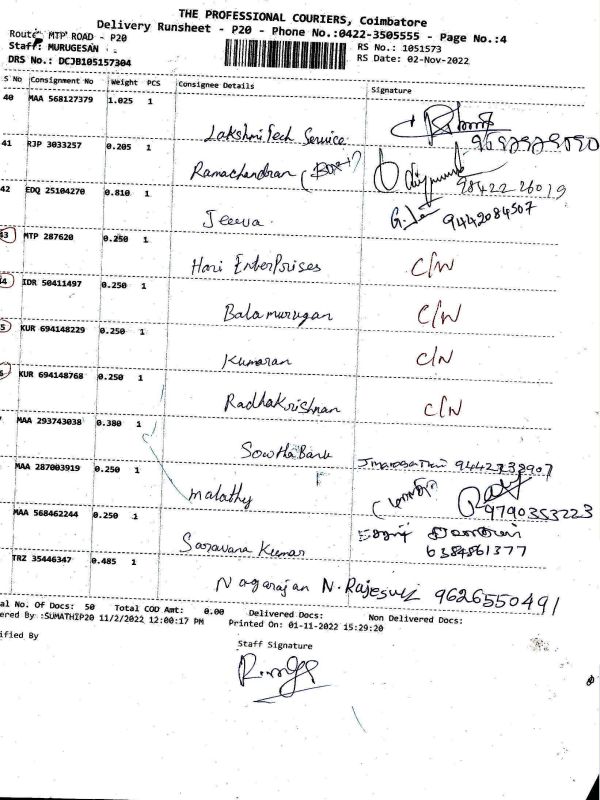 THE PROFESSIONAL COURIERS, Coimbatore
Delivery Runsheet - P20 - Phone No.:0422-3505555 - Page No.:4
Route: MTP ROAD - P20
Staff: MURUGESAN
RS No.: 1051573
DRS No.: DCJB105157304
RS Date: 02-Nov-2022
S No Consignment No Weight PCS Consignee Details Signature
40 MAA 568127379 1.025 1
Lakshmi Tech Service
41 RJP 3033257 0.205 1
Ramachandran 98422 26019
42 EDQ 25104270 0.810 1
Jeeva 9442084507
43 MTP 287620 0.250 1
Hari EnterPrises C/N
IDR 50411497 0.250 1
Balamurugan C/N
KUR 694148229 0.250 1
Kumaran C/N
KUR 694148768 0.250 1
RadhaKrishnan C/N
MAA 293743038 0.380 1
MAA 287003919 0.250 1
malathy 9790353223
MAA 568462244 0.250 1
Saravana Kumar 6384861377
TRZ 35446347 0.485 1
Nagarajan N. 9626550491
al No. Of Docs: 50 Total COD Amt: 0.00 Delivered Docs: Non Delivered Docs:
ered By :SUMATHIP20 11/2/2022 12:00:17 PM Printed On: 01-11-2022 15:29:20
ified By
Staff Signature